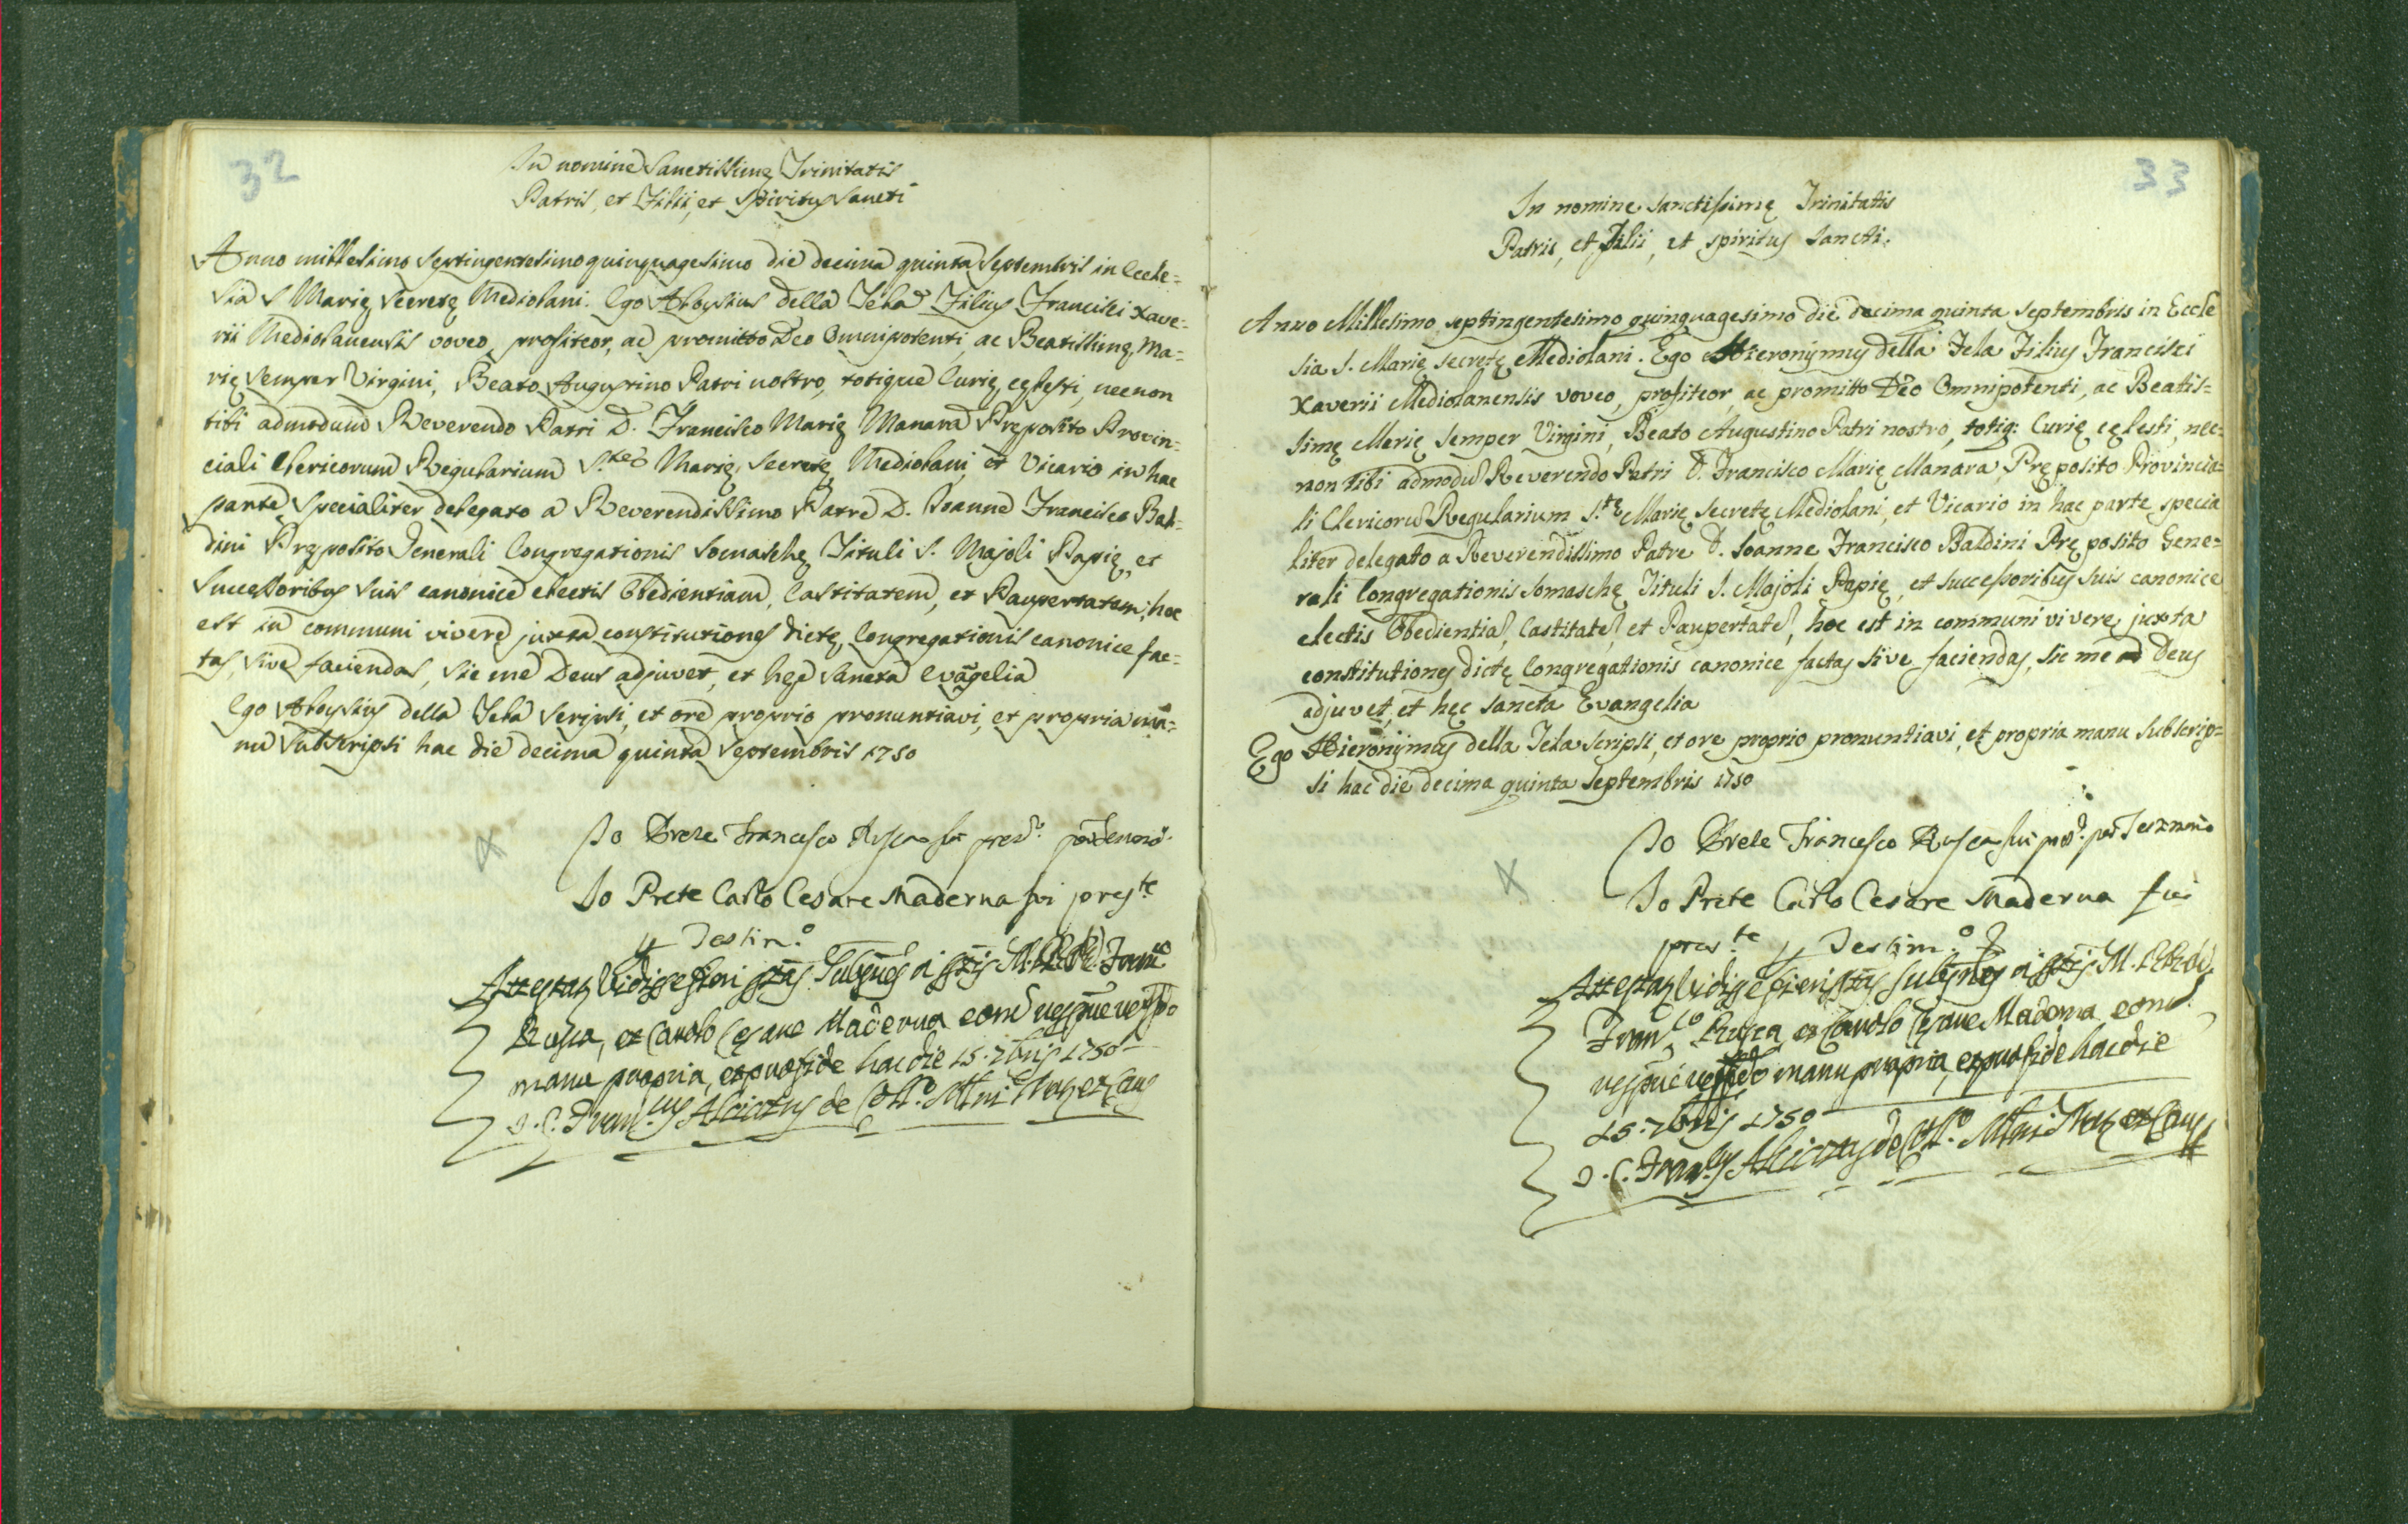 32
In nomine Sanctissimę Trinitatis
Patris, et Filii, et Spiritus Sancti
Anno millesimo septingentesimo quinquagesimo die decima quinta Septembris in Eccle=
sia S Marię Secretę Mediolani. Ego Aloysius della Tela Filius Francisci Xave=
rii Mediolanensis voveo, profiteor, ac promitto Deo Omnipotenti, ac Beatissimę Ma=
rię semper Virgini, Beato Augustino Patri nostro, totique Curię cęlesti, necnon
tibi admodum Reverendo Patri D. Francisco Marię Manara Pręposito Provin=
ciali Clericorum Regularium S.tę Marię Secretę Mediolani, et Vicario in hac
parte specialiter delegato a Reverendissimo Patre D. Joanne Francisco Bal=
dini Pręposito Generali Congregationis Somaschę Tituli S. Majoli Papię, et
Successoribus suis canonice electis Obedientiam, Castitatem, et Paupertatem, hoc
est in communi vivere juxta constitutiones dictę Congregationis canonice fac=
tas, sive faciendas, sic me Deus adjuvet, et hęc Sancta Evãgelia
Ego Aloysius della Tela scripsi, et ore proprio pronuntiavi, et propria ma=
nu subscripsi hac die decima quinta Septembris 1750
Io Prete Francesco Rusca fui
Io Prete Carlo Cesare Maderna fui pres.te
Testim.o
Rusca, et Carolo Cesare Maderna
manu propria, et pro fide hac die 15. 7bris 1750
33
In nomine Sanctissimę Trinitatis
Patris, et Filii, et Spiritus Sancti.
Anno Millesimo septingentesimo quinquagesimo die decima quinta Septembris in Eccle
sia S. Marię Secretę Mediolani. Ego Hieronymus della Tela Filius Francisci
Xaverii Mediolanensis voveo, profiteor, ac promitto Deo Omnipotenti, ac Beatis=
simę Marię Semper Virgini, Beato Augustino Patri nostro, totiq: Curię cęlesti, nec=
non tibi admodũ Reverendo Patri D. Francisco Marię Manara, Pręposito Provincia=
li Clericorũ Regularium S.tę Marię Secretę Mediolani, et Vicario in hac parte specia
liter delegato a Reverendissimo Patre D. Joanne Francisco Baldini Pręposito Gene=
rali Congregationis Somaschę Tituli S. Majoli Papię, et successoribus suis canonice
electis Obedientiã, Castitatẽ, et Paupertatẽ, hoc est in communi vivere juxta
constitutiones dictę Congregationis canonice factas sive faciendas, sic me Deus
adjuvet, et hęc Sancta Evangelia
Ego Hieronymus della Tela scripsi, et ore proprio pronuntiavi, et propria manu subscrip=
si hac die decima quinta Septembris 1750
Io Prete Francesco Rusca fui
Io Prete Carlo Cesare Maderna fui
pres.te Testim.o
Fran.co Rusca, et Carolo Cesare Maderna
manu propria, et pro fide hac die
15. 7bris 1750